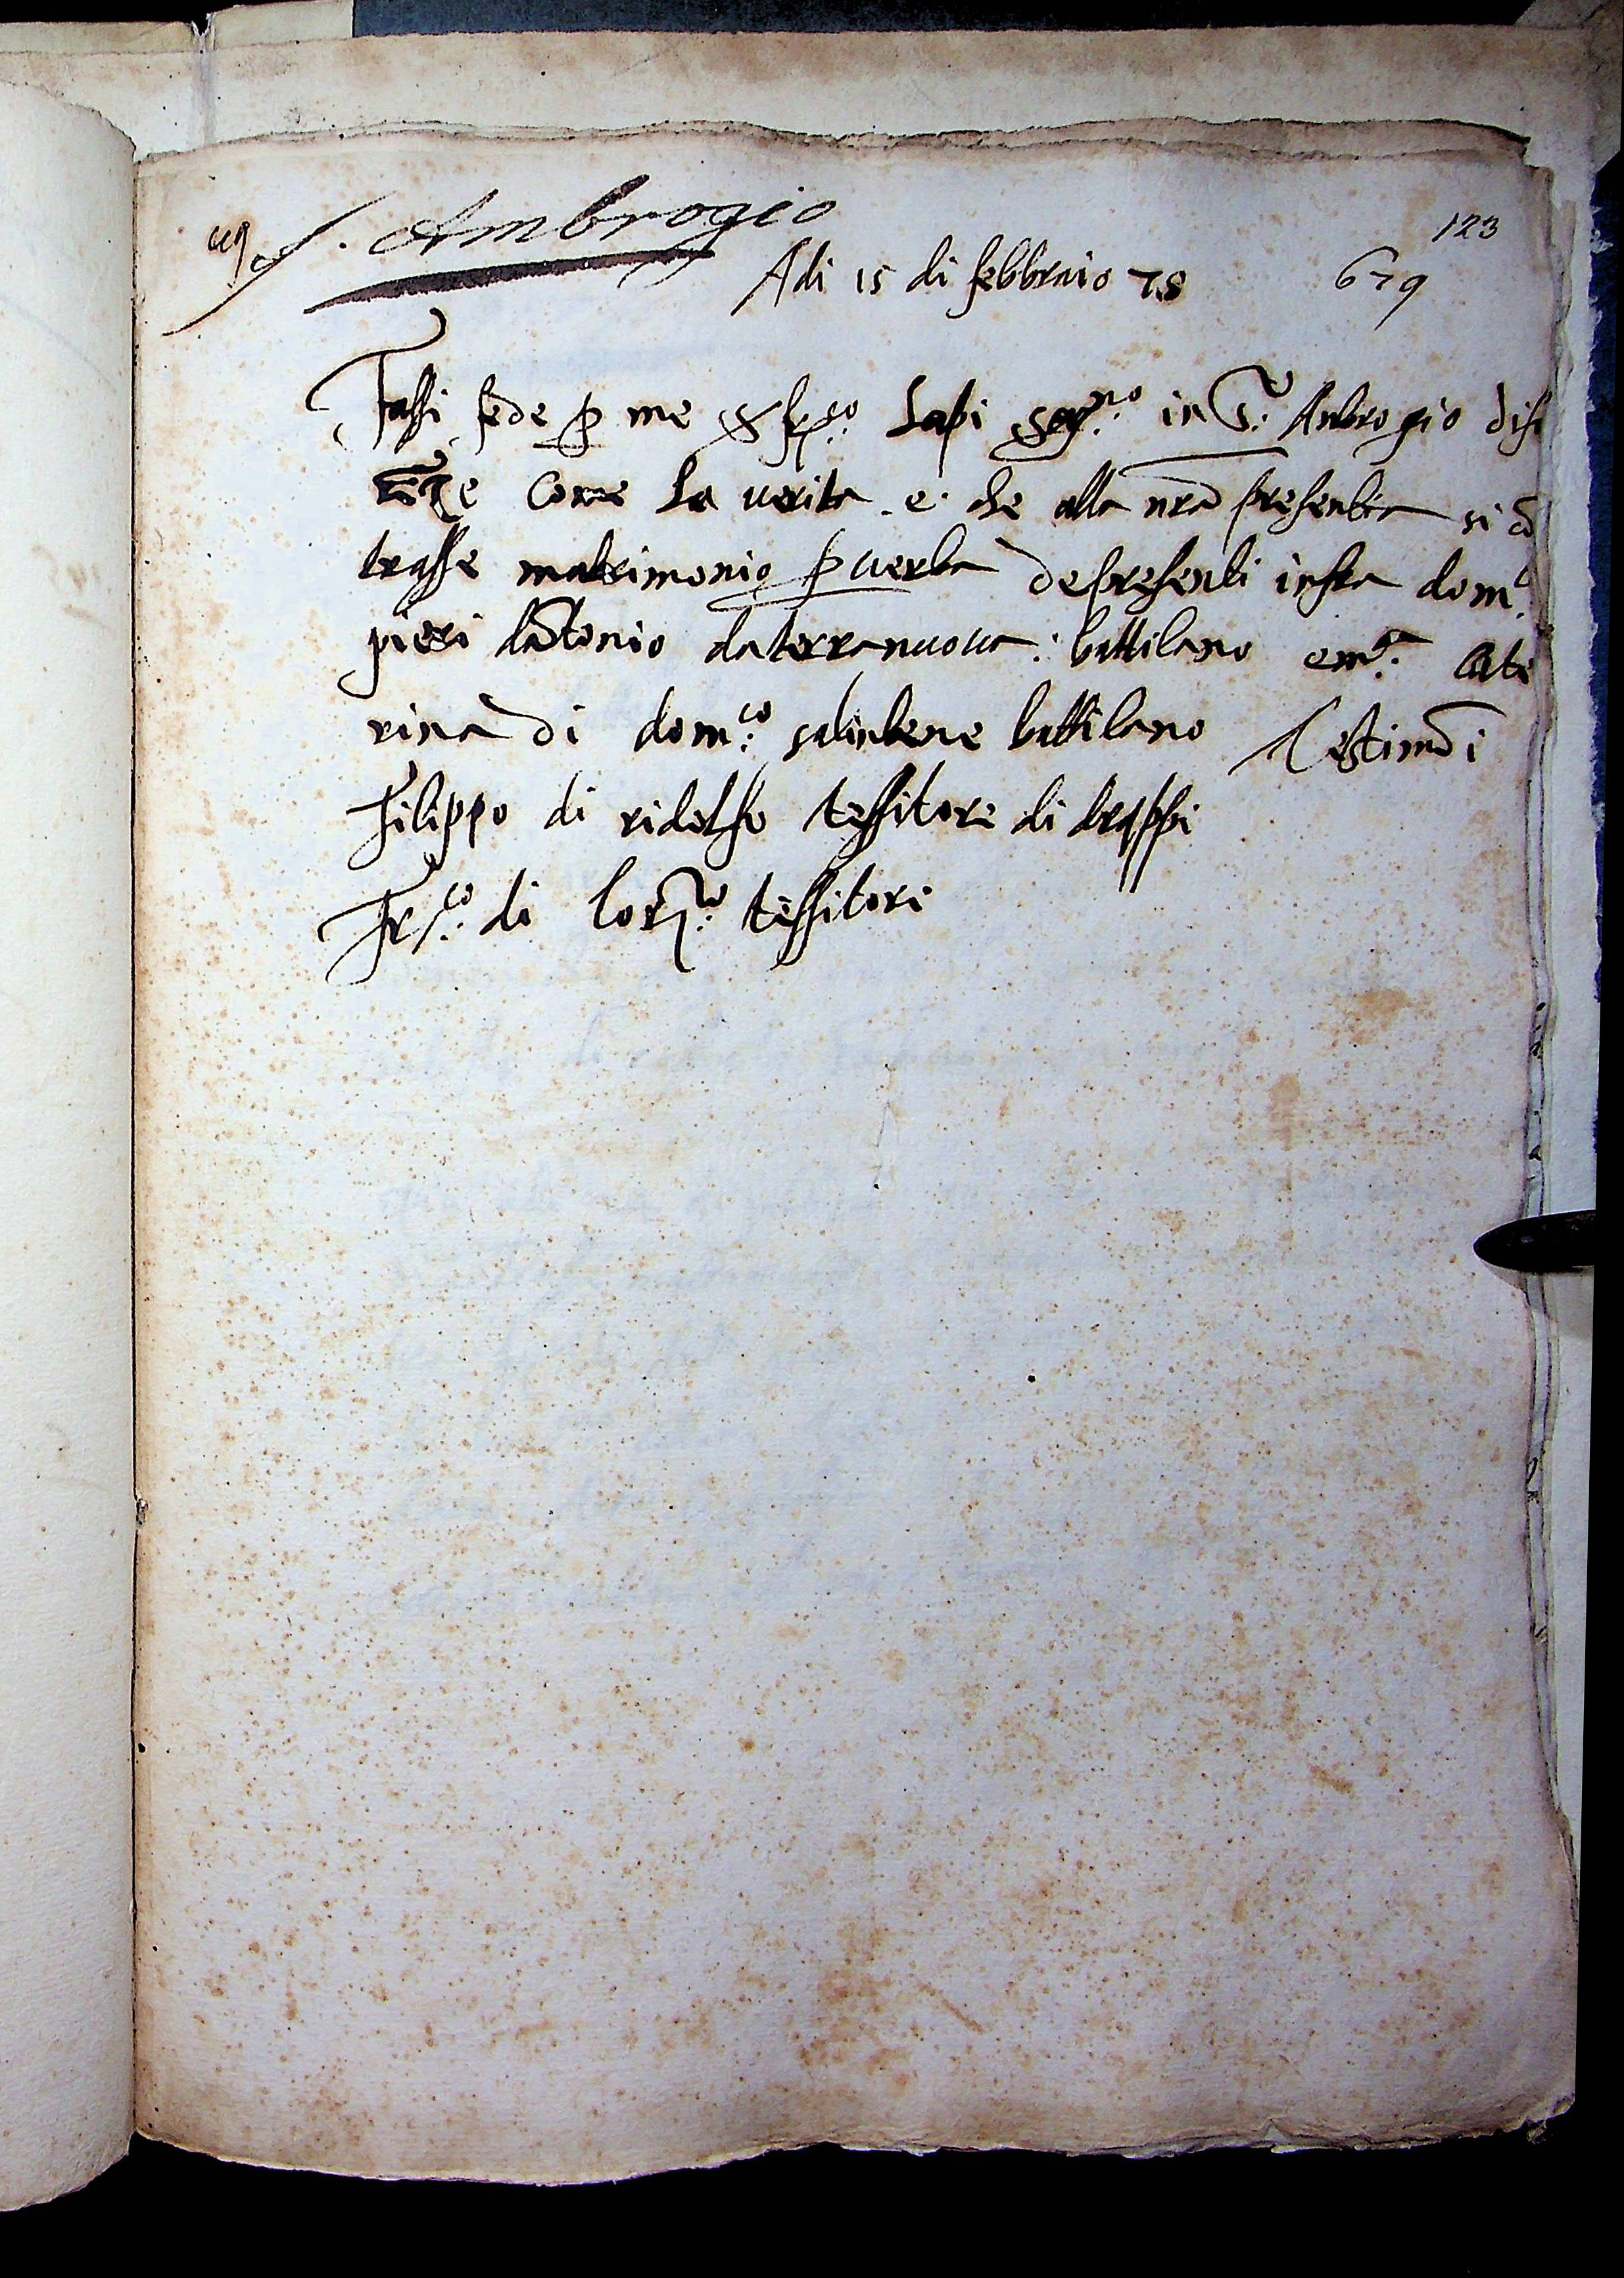 S. Ambrogio
123
Adi 15 di febbraio 78
679
Fassi fede p me Lapi in S. Anbrogio difi
rēze Come La verita e che alla nrā presentia si cō
trasse matrimonio p verba de presenti infra dom.co
pieri dātonio da terranuova: battilano em.a Cate
rina di dom.co salinbene battilano Testimōi
Filippo di ridolfo tessitore di drappi
Fr.co di lorz.o tessitori